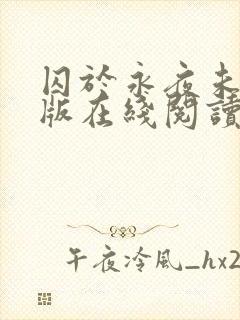 囚於永夜未
版在綫閱讀
午夜冷風_hx2